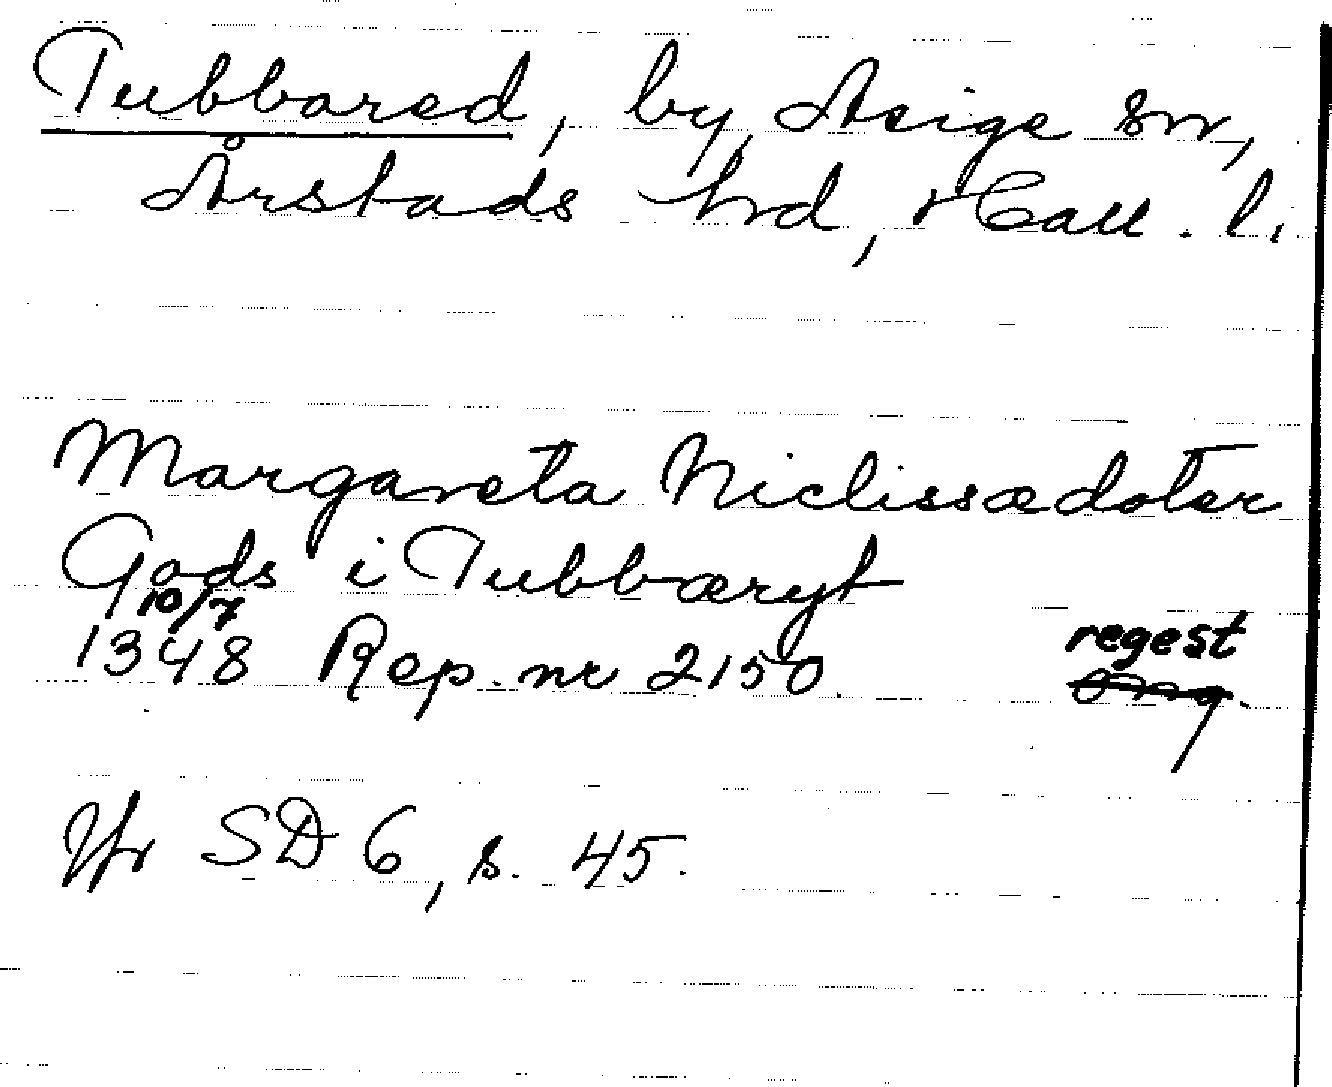 Tubbared, by, Asige sn,
Årstads hrd, Hall. l.
Margareta Niclissædoter
Gods i Tubbæryt
10/7
1348 Rep. nr 2150.
regest
Jfr SD 6, s. 45.